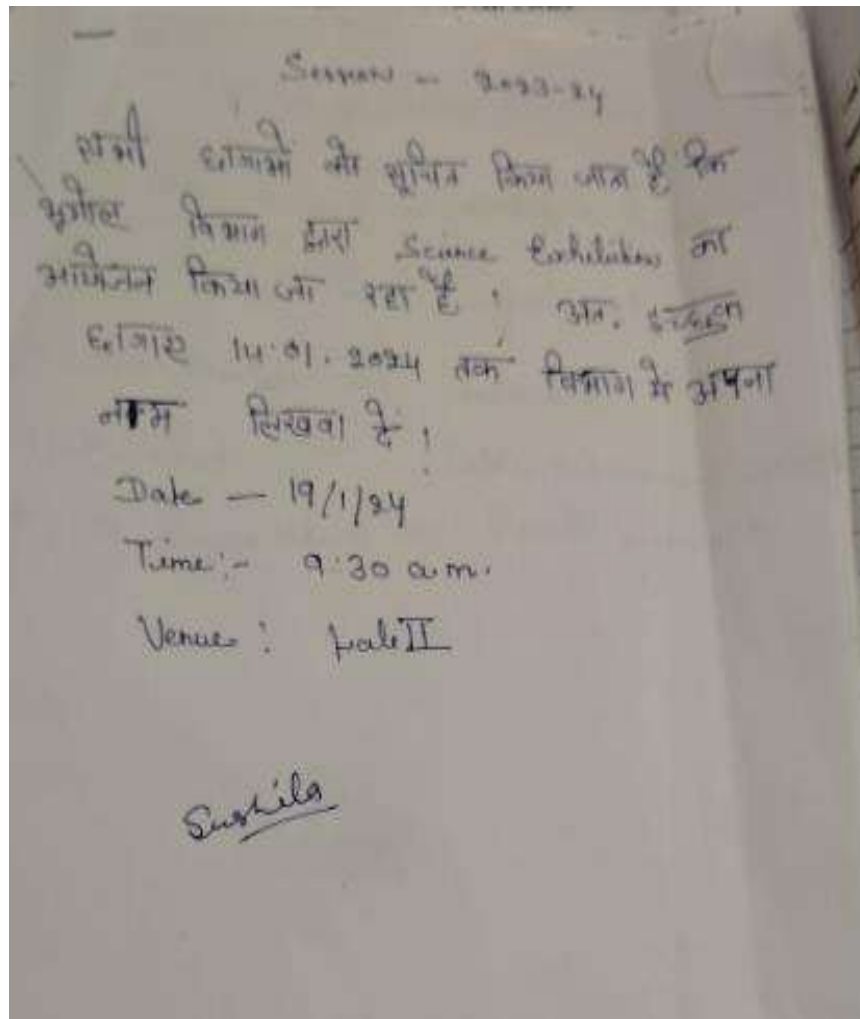 Session - 2023-24
सभी छात्राओं को सूचित किया जाता है कि
भूगोल विभाग द्वारा Science Exhibition का
आयोजन किया जा रहा है। अतः इच्छुक
छात्राएं 14.01.2024 तक विभाग में अपना
नाम लिखवा दें।
Date - 19/1/24
Time:- 9:30 a.m.
Venue: Lab II
Sushila